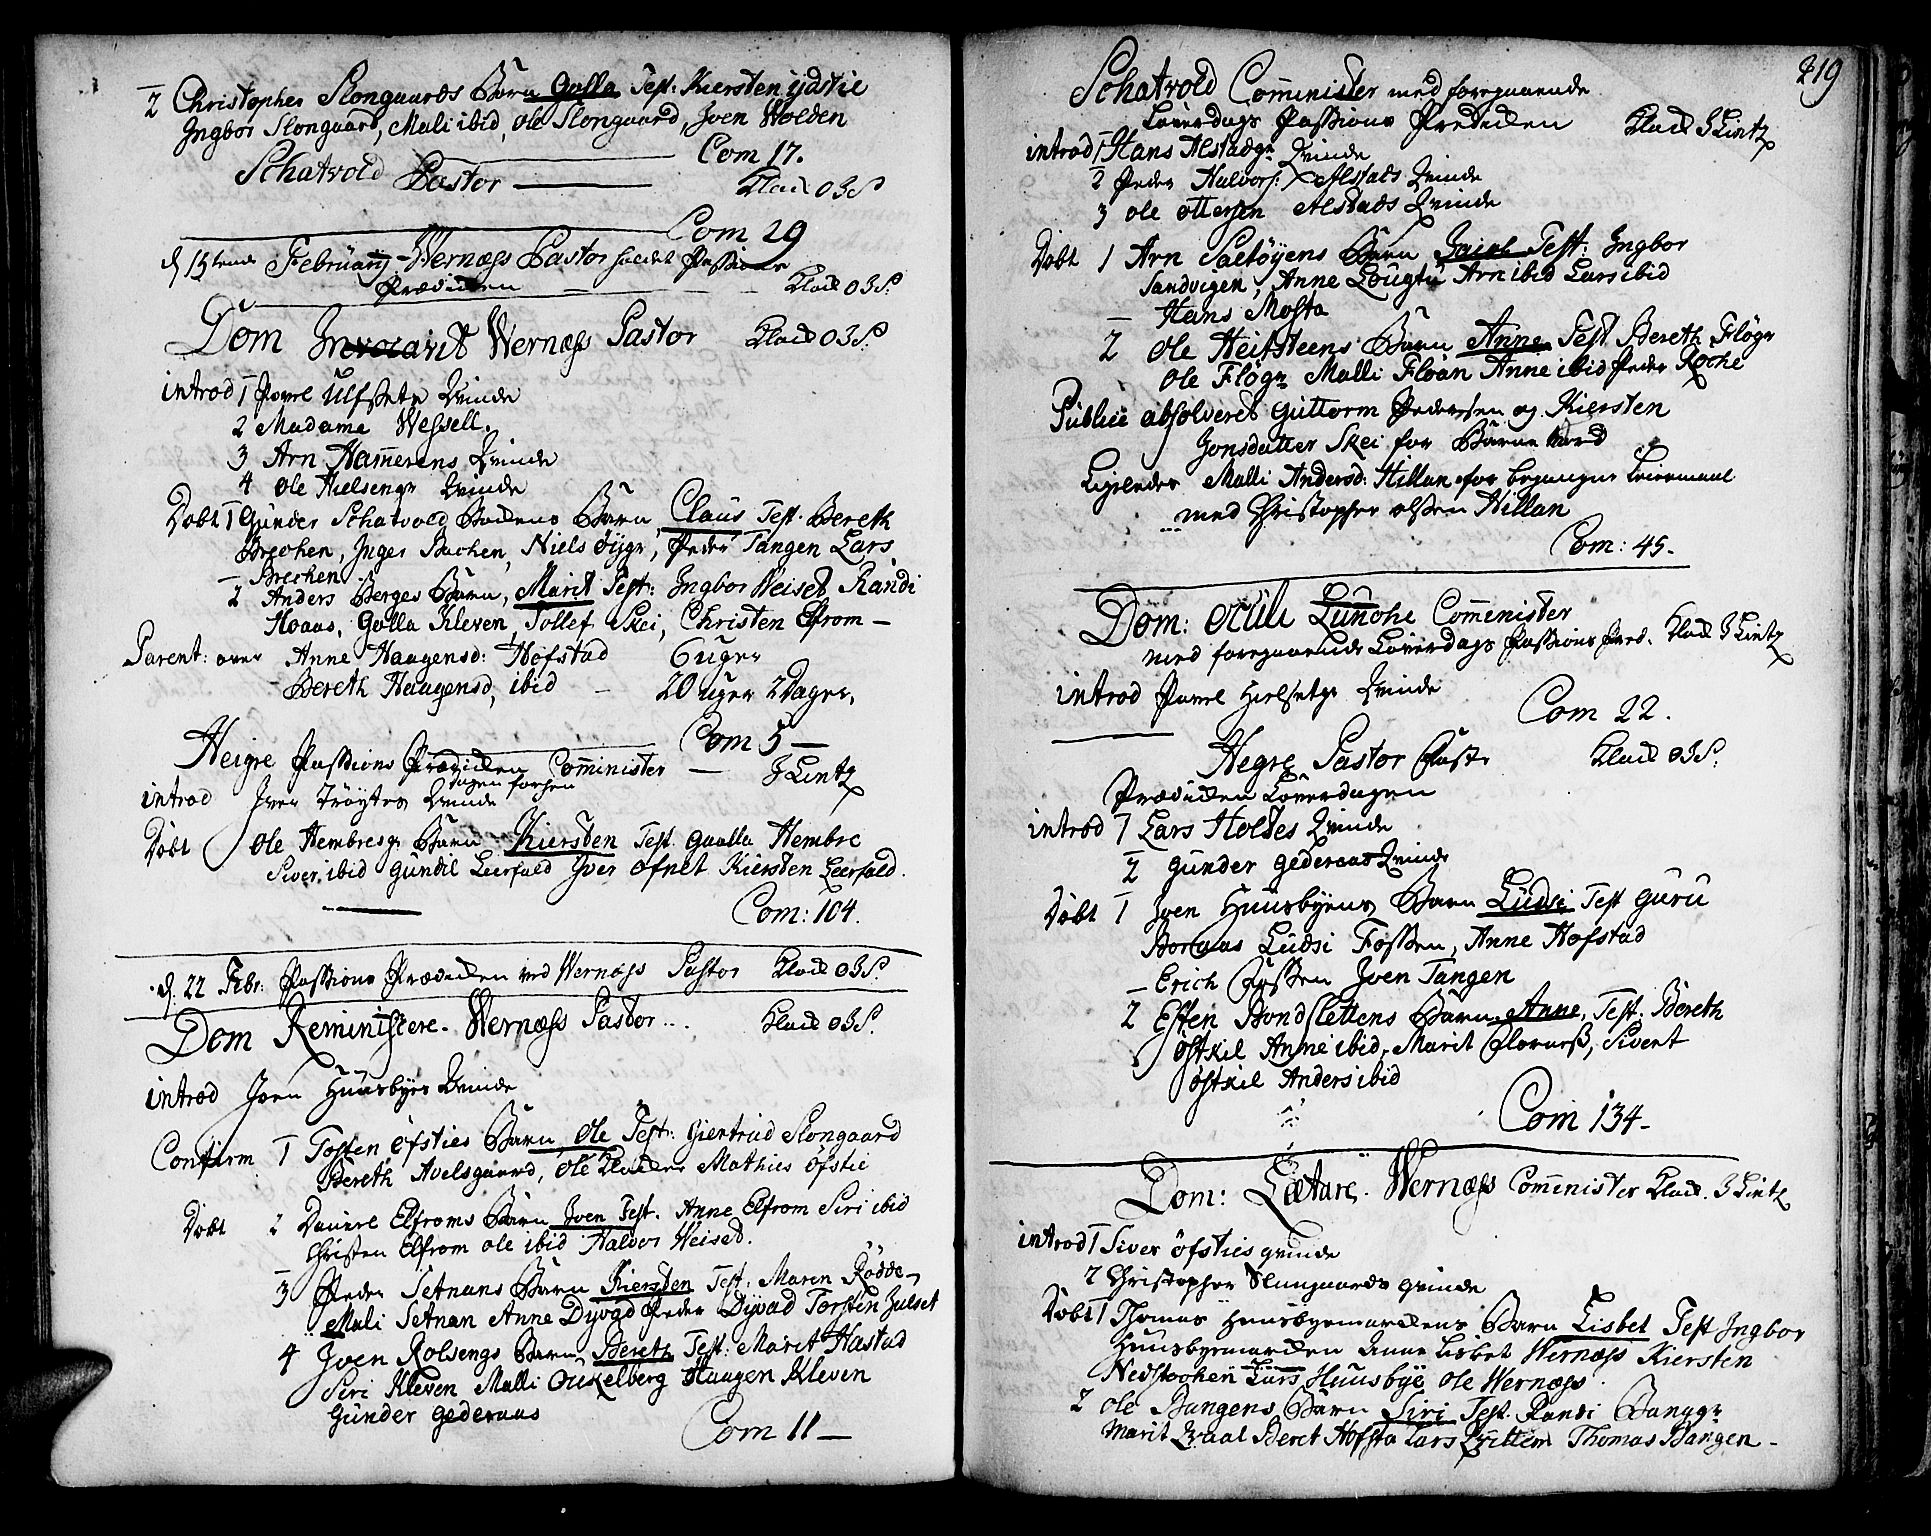 2 Christopher Slongaards Barn Golla Test: Kiersten ijdstie
Ingbor Slongaard, Mali ibid, Ole Slongaard, Joen Wolden
Com 17.
Schatvold Pastor
Com 29
d 15tende Februarij Wernæss Pastor holdet Passions
Prædicken
Dom Invocavit Wernæss Pastor
introd 1 Powel Ulfsets Qvinde
2 Madame Wessell.
3 Arn Hammerens Qvinde
4 Ole Nielsengs Qvinde
Døbt 1 Gunder Schatvold Backens Barn Claus Test. Bereth
Brechen, Inger Bachen, Niels Øygr, Peder Tangen Lars
Brechen
2 Anders Berges Barn, Marit Test: Ingbor Weiset Randi
Hoaas, Golla Kleven, Tollef Skei, Christen Elfrom
Parent: over Anne Haagensd: Hofstad 6 uger
Bereth Haagensd, ibid 20 uger 2 Dager,
Com 5
Heigre Passions Prædicken Comminister J Lintz
dagen forhen
introd Iver Trøytes Qvinde
Døbt Ole Hembresgr Barn Kiersten Test. Gualla Hembre
Siver ibid Gundil Leerfald Iver Ofnet Kiersten Leerfald.
Com: 104.
d. 22 Febr: Passions Prædicken ved Wernæss Pastor
Dom Reminiscere. Wernæss Pastor
introd Joen Huusbyes Qvinde
Confirm 1 Tosten Øfsties Barn Ole Test: Giertrud Slongaard
Bereth Avelsgaard, Ole Mathies Øfstie
Døbt 2 Elfroms Barn Joen Test. Anne Elfrom Siri ibid
Christen Elfrom Ole ibid Halvor Weiset.
3 Peder Setnans Barn Kiersten Test: Maren Rødde
Mali Setnan Anne Dyvad Peder Dyvad Torsten Julset
4 Joen Rolsengs Barn Bereth Test: Marit Hastad
Siri Kleven Malli Ouxelberg Haagen Kleven
Gunder Gederaas
Com 11
219
Schatvold Comminister med foregaaende
Løverdags Passions Prediken J Lintz
introd 1 Hans Alstadgr Qvinde
2 Peder Halvors: Alstads Qvinde
3 Ole Ottersen Alstads Qvinde
Døbt 1 Arn Saltøyens Barn Jacob Test: Ingbor
Sandvigen, Anne Lougtu Arn ibid Lars ibid
Hans Mosta
2 Ole Heitsteens Barn Anne Test Bereth Fløgr
Ole Fløgr Malli Floan Anne ibid Peder Roche
Publice absolveret Guttorm Pedersen og Kiersten
Jonsdatter Skei for Barne
Ligeledes Malli Andersd: Hillan for begangne Leiermaal
med Christopher Olssen Hillan
Com: 45.
Dom: Oculi Lunche Comminister
med foregaaende Løverdags Passions Præd. J Lintz
introd Powel Hielsetgr Qvinde
Com 22.
Hegre Pastor
Prædicken Løverdagen
introd 1 Lars Holdes Qvinde
2 Gunder Gederaas Qvinde
Døbt 1 Joen Huusbyens Barn Ludsi Test Guru
Borraas Ludsi Fossen, Anne Hofstad
Erich Fossen Joen Tangen
2 Esten Bondslettens Barn Anne, Test. Bereth
Østkil Anne ibid, Marit, Sivert
Østkil Anders ibid
Com 134
Dom: Lætare. Wernæss Comminister J Lintz
introd 1 Siver Øfsties qvinde
2 Christopher Slungaards qvinde
Døbt 1 Thomas Huusbymarckens Barn Lisbet Test Ingbor
Huusbymarcken Anne Lisbet Wernæss Kiersten
Nedstochen Lars Huusbye Ole Wernæss
2 Ole Bangens Barn Siri Test. Randi Banggr
Marit Qvaal Beret Hofsta Lars Thomas Bangen